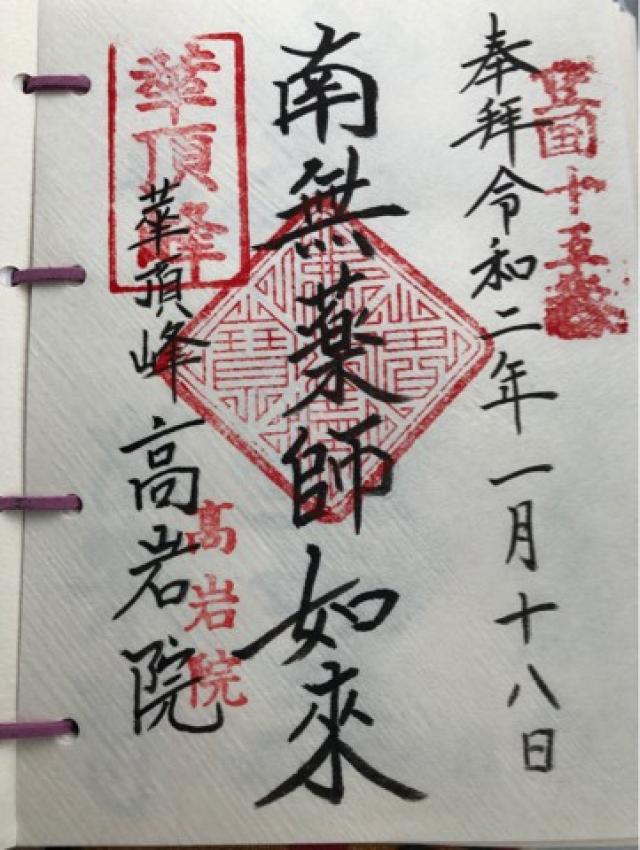 十五
奉拜令和二年一月十八日
南無薬師如來
華頂峰
華頂峰高岩院
高岩院